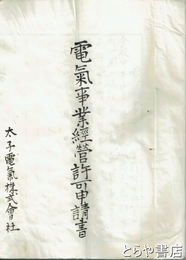 電氣事業經營許可申請書
太子電氣株式會社
とらや書店